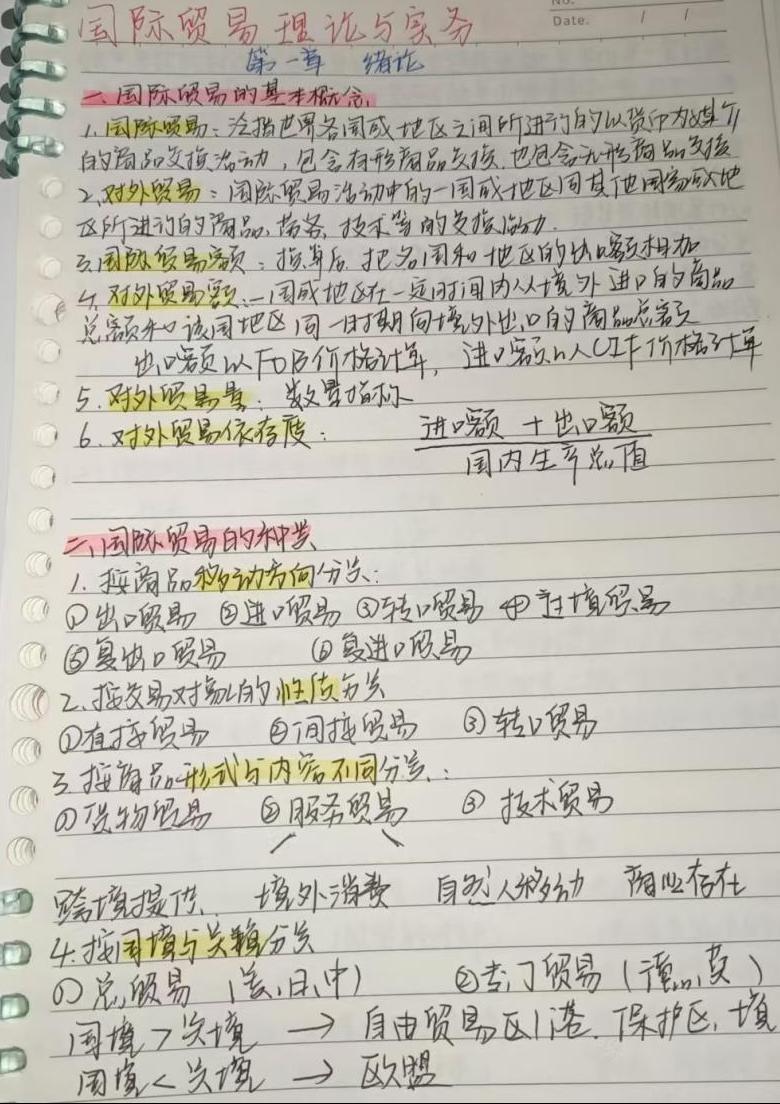 No.
Date.
国际贸易理论与实务
第一章 绪论
一、国际贸易的基本概念
1. 国际贸易：泛指世界各国或地区之间所进行的以货币为媒介
的商品交换活动，包含有形商品交换，也包含无形商品交换
2. 对外贸易：国际贸易活动中的一国或地区同其他国家或地
区所进行的商品、劳务、技术等的交换活动.
3. 国际贸易额：折算后，把各国和地区的出口额相加
4. 对外贸易额：一国或地区在一定时间内从境外进口的商品
总额和该国地区同一时期向境外出口的商品总额
出口额以FOB价格计算，进口额以CIF价格计算
5. 对外贸易量：数量指标
6. 对外贸易依存度：
进口额 + 出口额
国内生产总值
二、国际贸易的种类
1. 按商品移动方向分类：
①出口贸易 ②进口贸易 ③转口贸易 ④过境贸易
⑤复出口贸易 ⑥复进口贸易
2. 按交易对象的性质分类
①直接贸易 ②间接贸易 ③转口贸易
3. 按商品形式与内容不同分类：
①货物贸易 ②服务贸易 ③技术贸易
跨境提供 境外消费 自然人移动 商业存在
4. 按国境与关境分类
①总贸易（美、日、中） ②专门贸易（德、英）
国境 > 关境 → 自由贸易区、港、保护区，境
国境 < 关境 → 欧盟